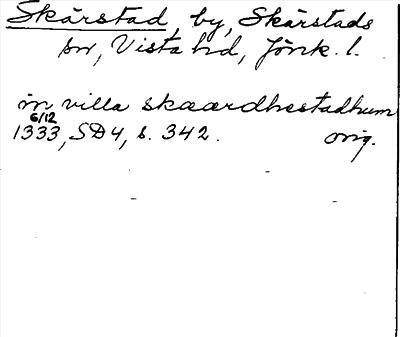 Skärstad, by, Skärstads
sn, Vista hd, Jönk. l.
in villa skaardhestadhum
6/12
1333, SD4, s. 342. orig.